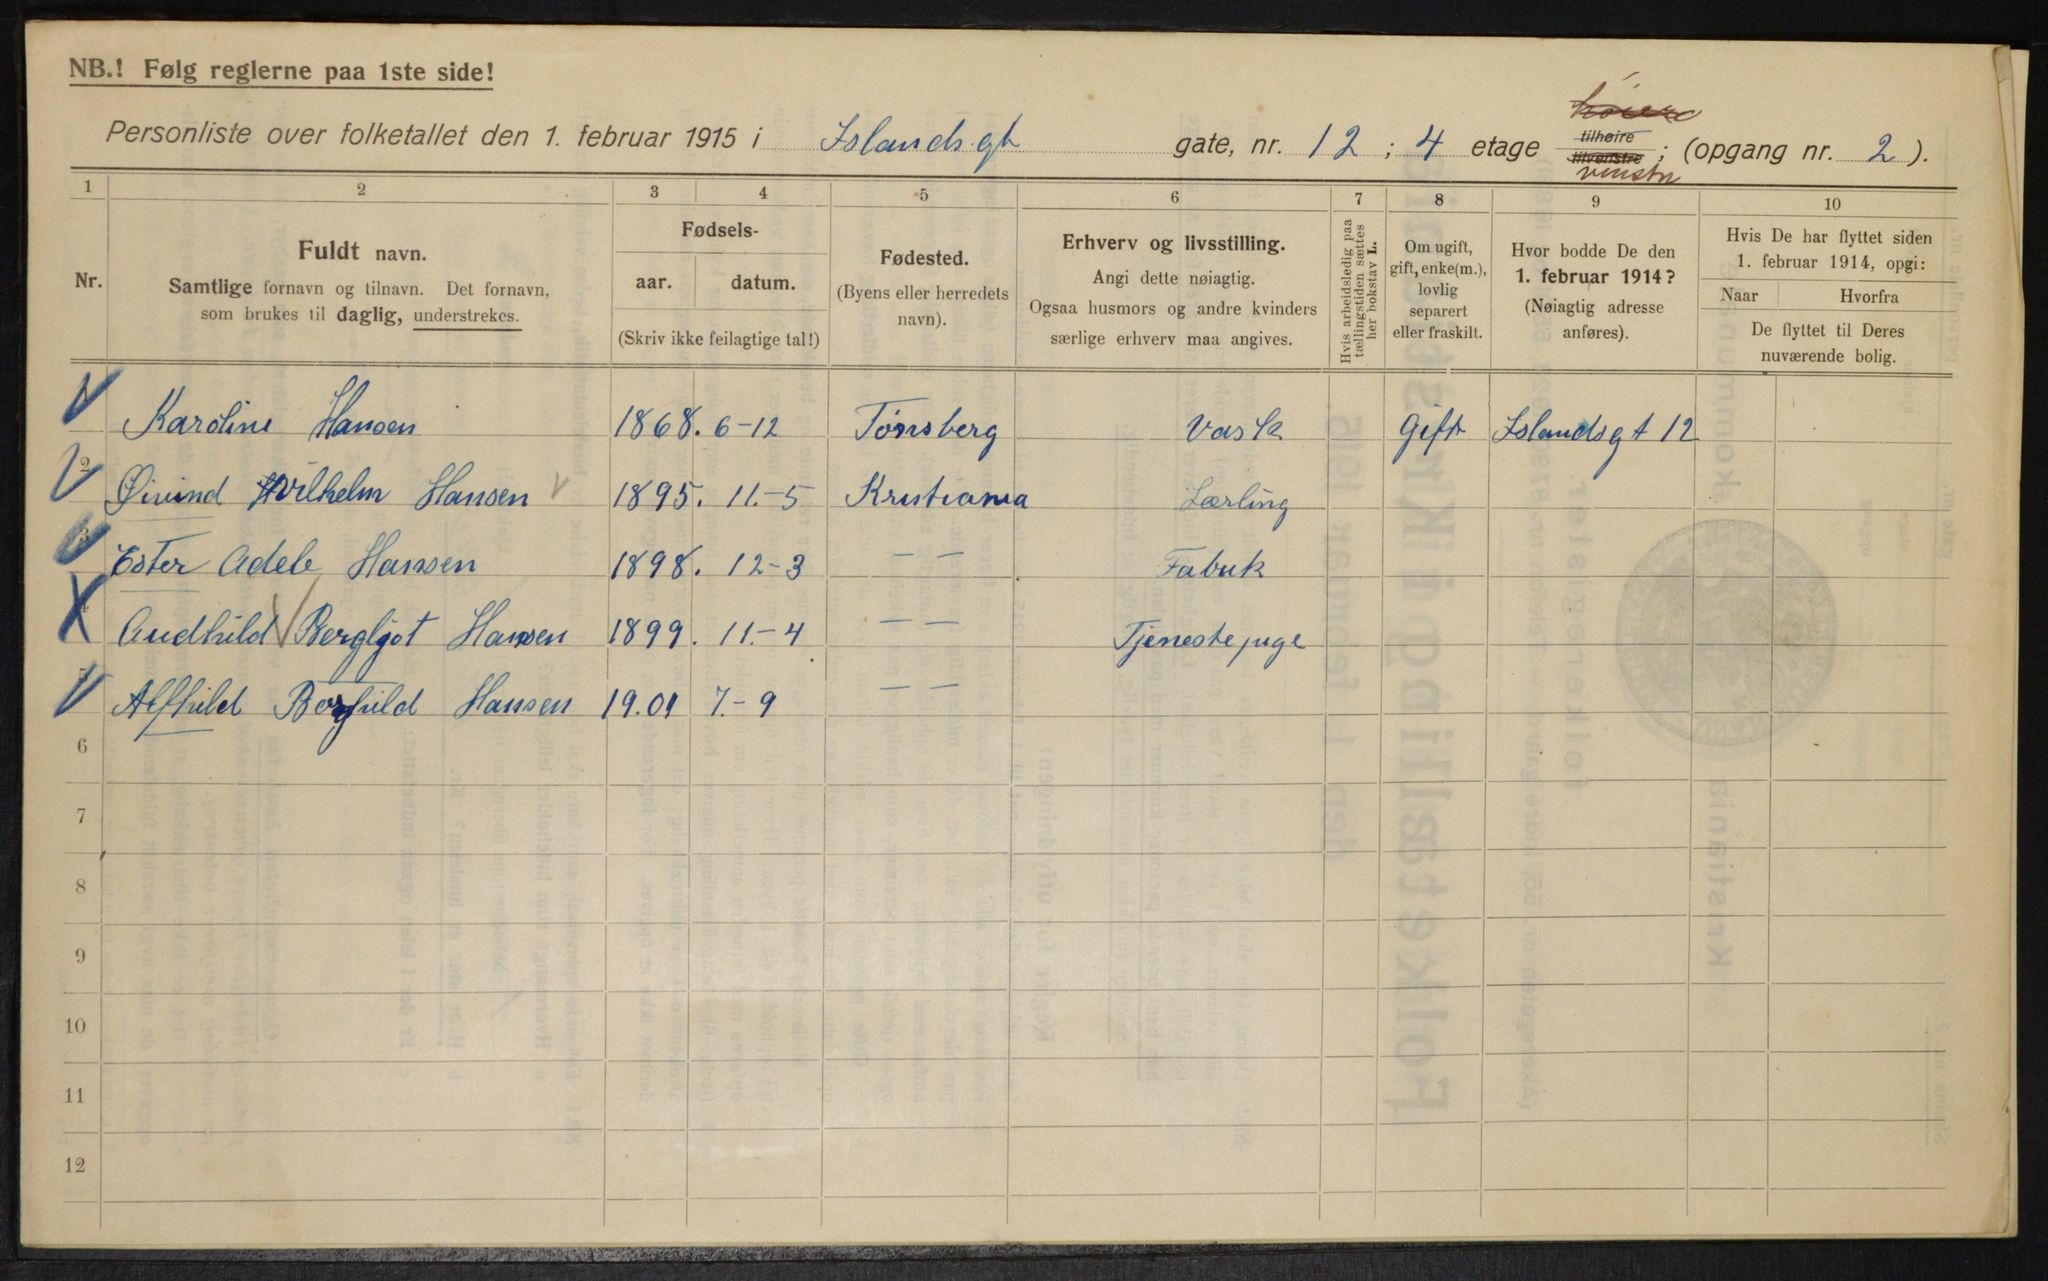 NB.! Følg reglerne paa 1ste side!
høire
Personliste over folketallet den 1. februar 1915 i Islands.gt gate, nr. 12 ; 4 etage tilhøire tilvenstre ; (opgang nr. 2 ).
venstre
1 2 3 4 5 6 7 8 9 10
Nr.
Fuldt navn.
Samtlige fornavn og tilnavn. Det fornavn,
som brukes til daglig, understrekes.
Fødsels-
aar. datum.
(Skriv ikke feilagtige tal!)
Fødested.
(Byens eller herredets
navn).
Erhverv og livsstilling.
Angi dette nøiagtig.
Ogsaa husmors og andre kvinders
særlige erhverv maa angives.
Hvis arbeidsledig paa
tællingstiden sættes
her bokstav L.
Om ugift,
gift, enke(m.),
lovlig
separert
eller fraskilt.
Hvor bodde De den
1. februar 1914?
(Nøiagtig adresse
anføres).
Hvis De har flyttet siden
1. februar 1914, opgi:
Naar Hvorfra
De flyttet til Deres
nuværende bolig.
Karoline Hansen 1868. 6-12 Tønsberg Vask Gift Islandsgt 12
2 Øivind Wilhelm Hansen 1895. 11.-5 Kristiania Lærling
3 Ester Adele Hansen 1898. 12-3 — — Fabrik
4 Audhild Bergljot Hansen 1899. 11.-4 — — Tjenestepige
5 Alfhild Borghild Hansen 19.01 7.-9 — —
6
7
8
9
10
11
12